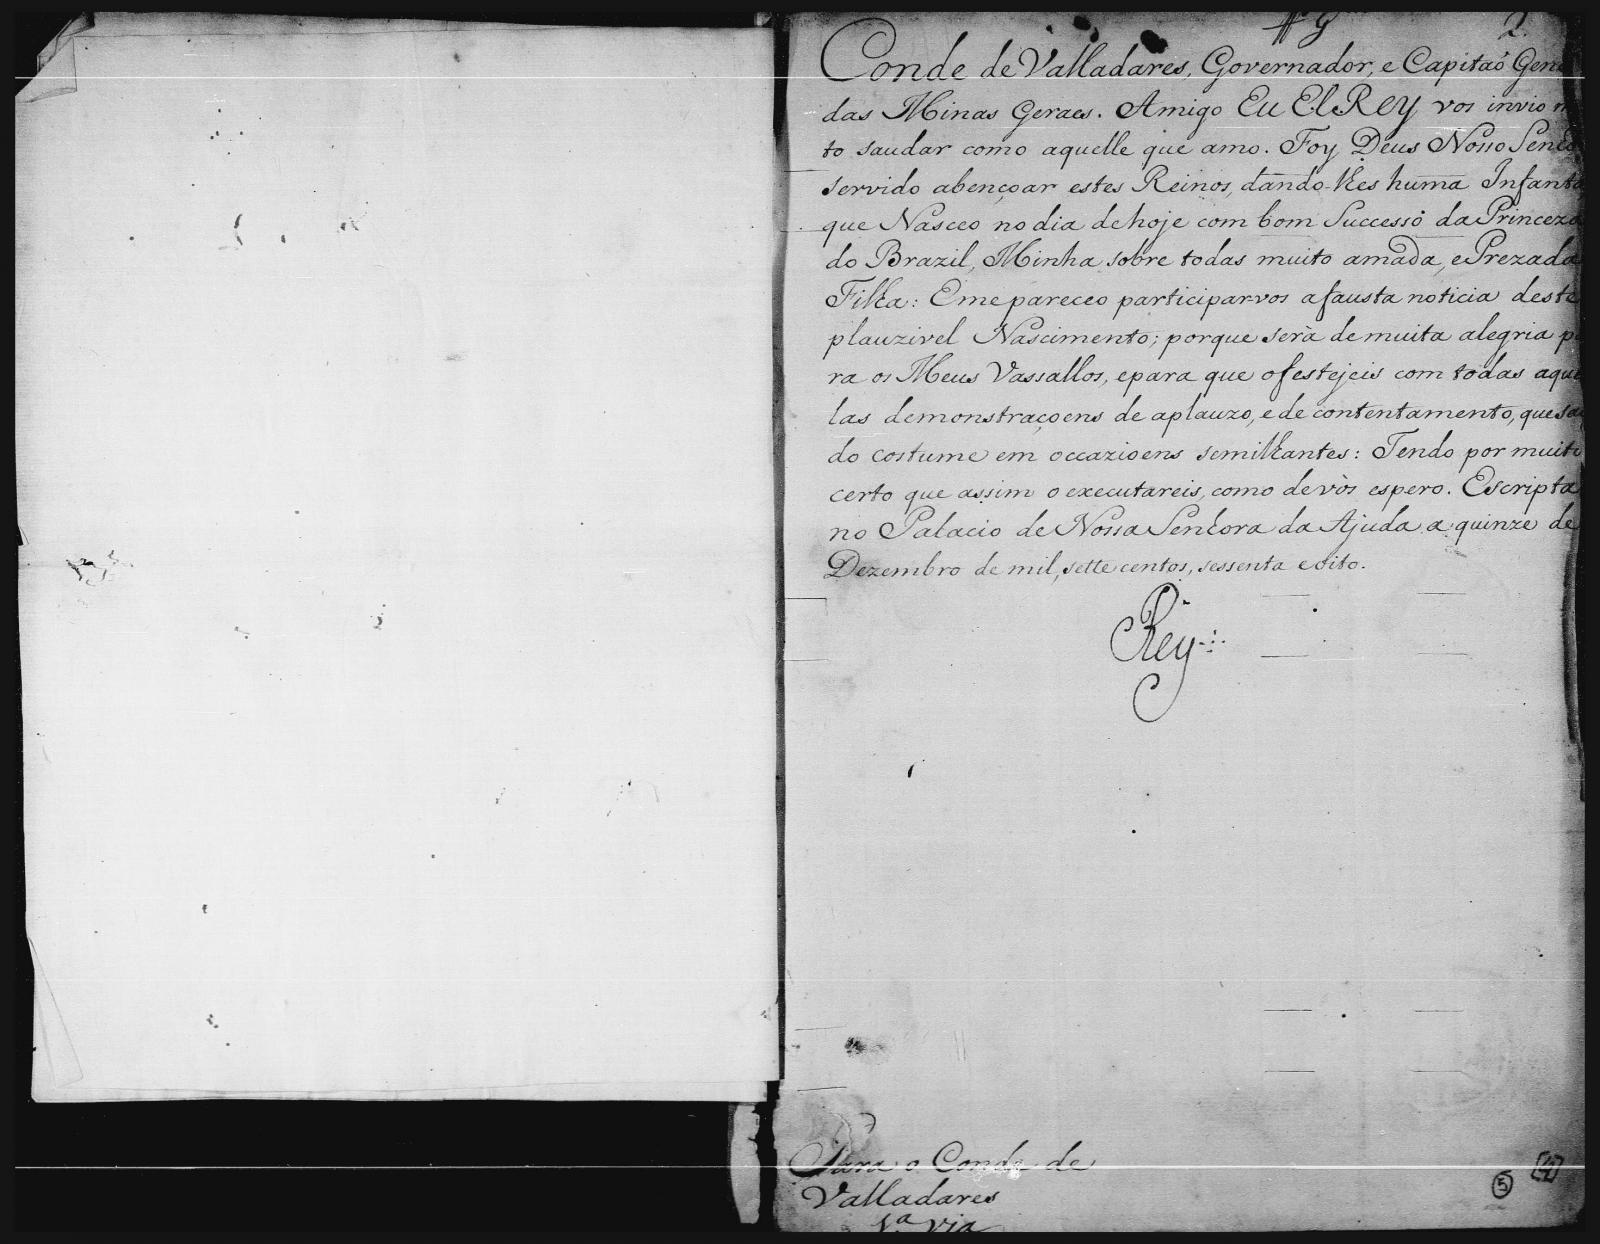 2.
Conde de Valladares, Governador, e Capitaõ Gene
das Minas Geraes. Amigo Eu ElRey vos invio m
to saudar como aquelle que amo. Foy Deus Nosso Senho
servido abençoar estes Reinos, dando-lhes huma Infanta
que Nasceo no dia de hoje com bom Successo da Princeza
do Brazil, Minha sobre todas muito amada, e Prezada
Filha: E me pareceo participar-vos a fausta noticia deste
plauzivel Nascimento; porque serà de muita alegria pa
ra os Meus Vassallos, e para que o festejeis com todas aque
las demonstraçoens de aplauzo, e de contentamento, que saõ
do costume em occazioens semilhantes: Tendo por muito
certo que assim o executareis, como de vòs espero. Escripta
no Palacio de Nossa Senhora da Ajuda a quinze de
Dezembro de mil, sette centos, sessenta e oito.
Rey
Para o Conde de
Valladares
1ª via
5
[4]